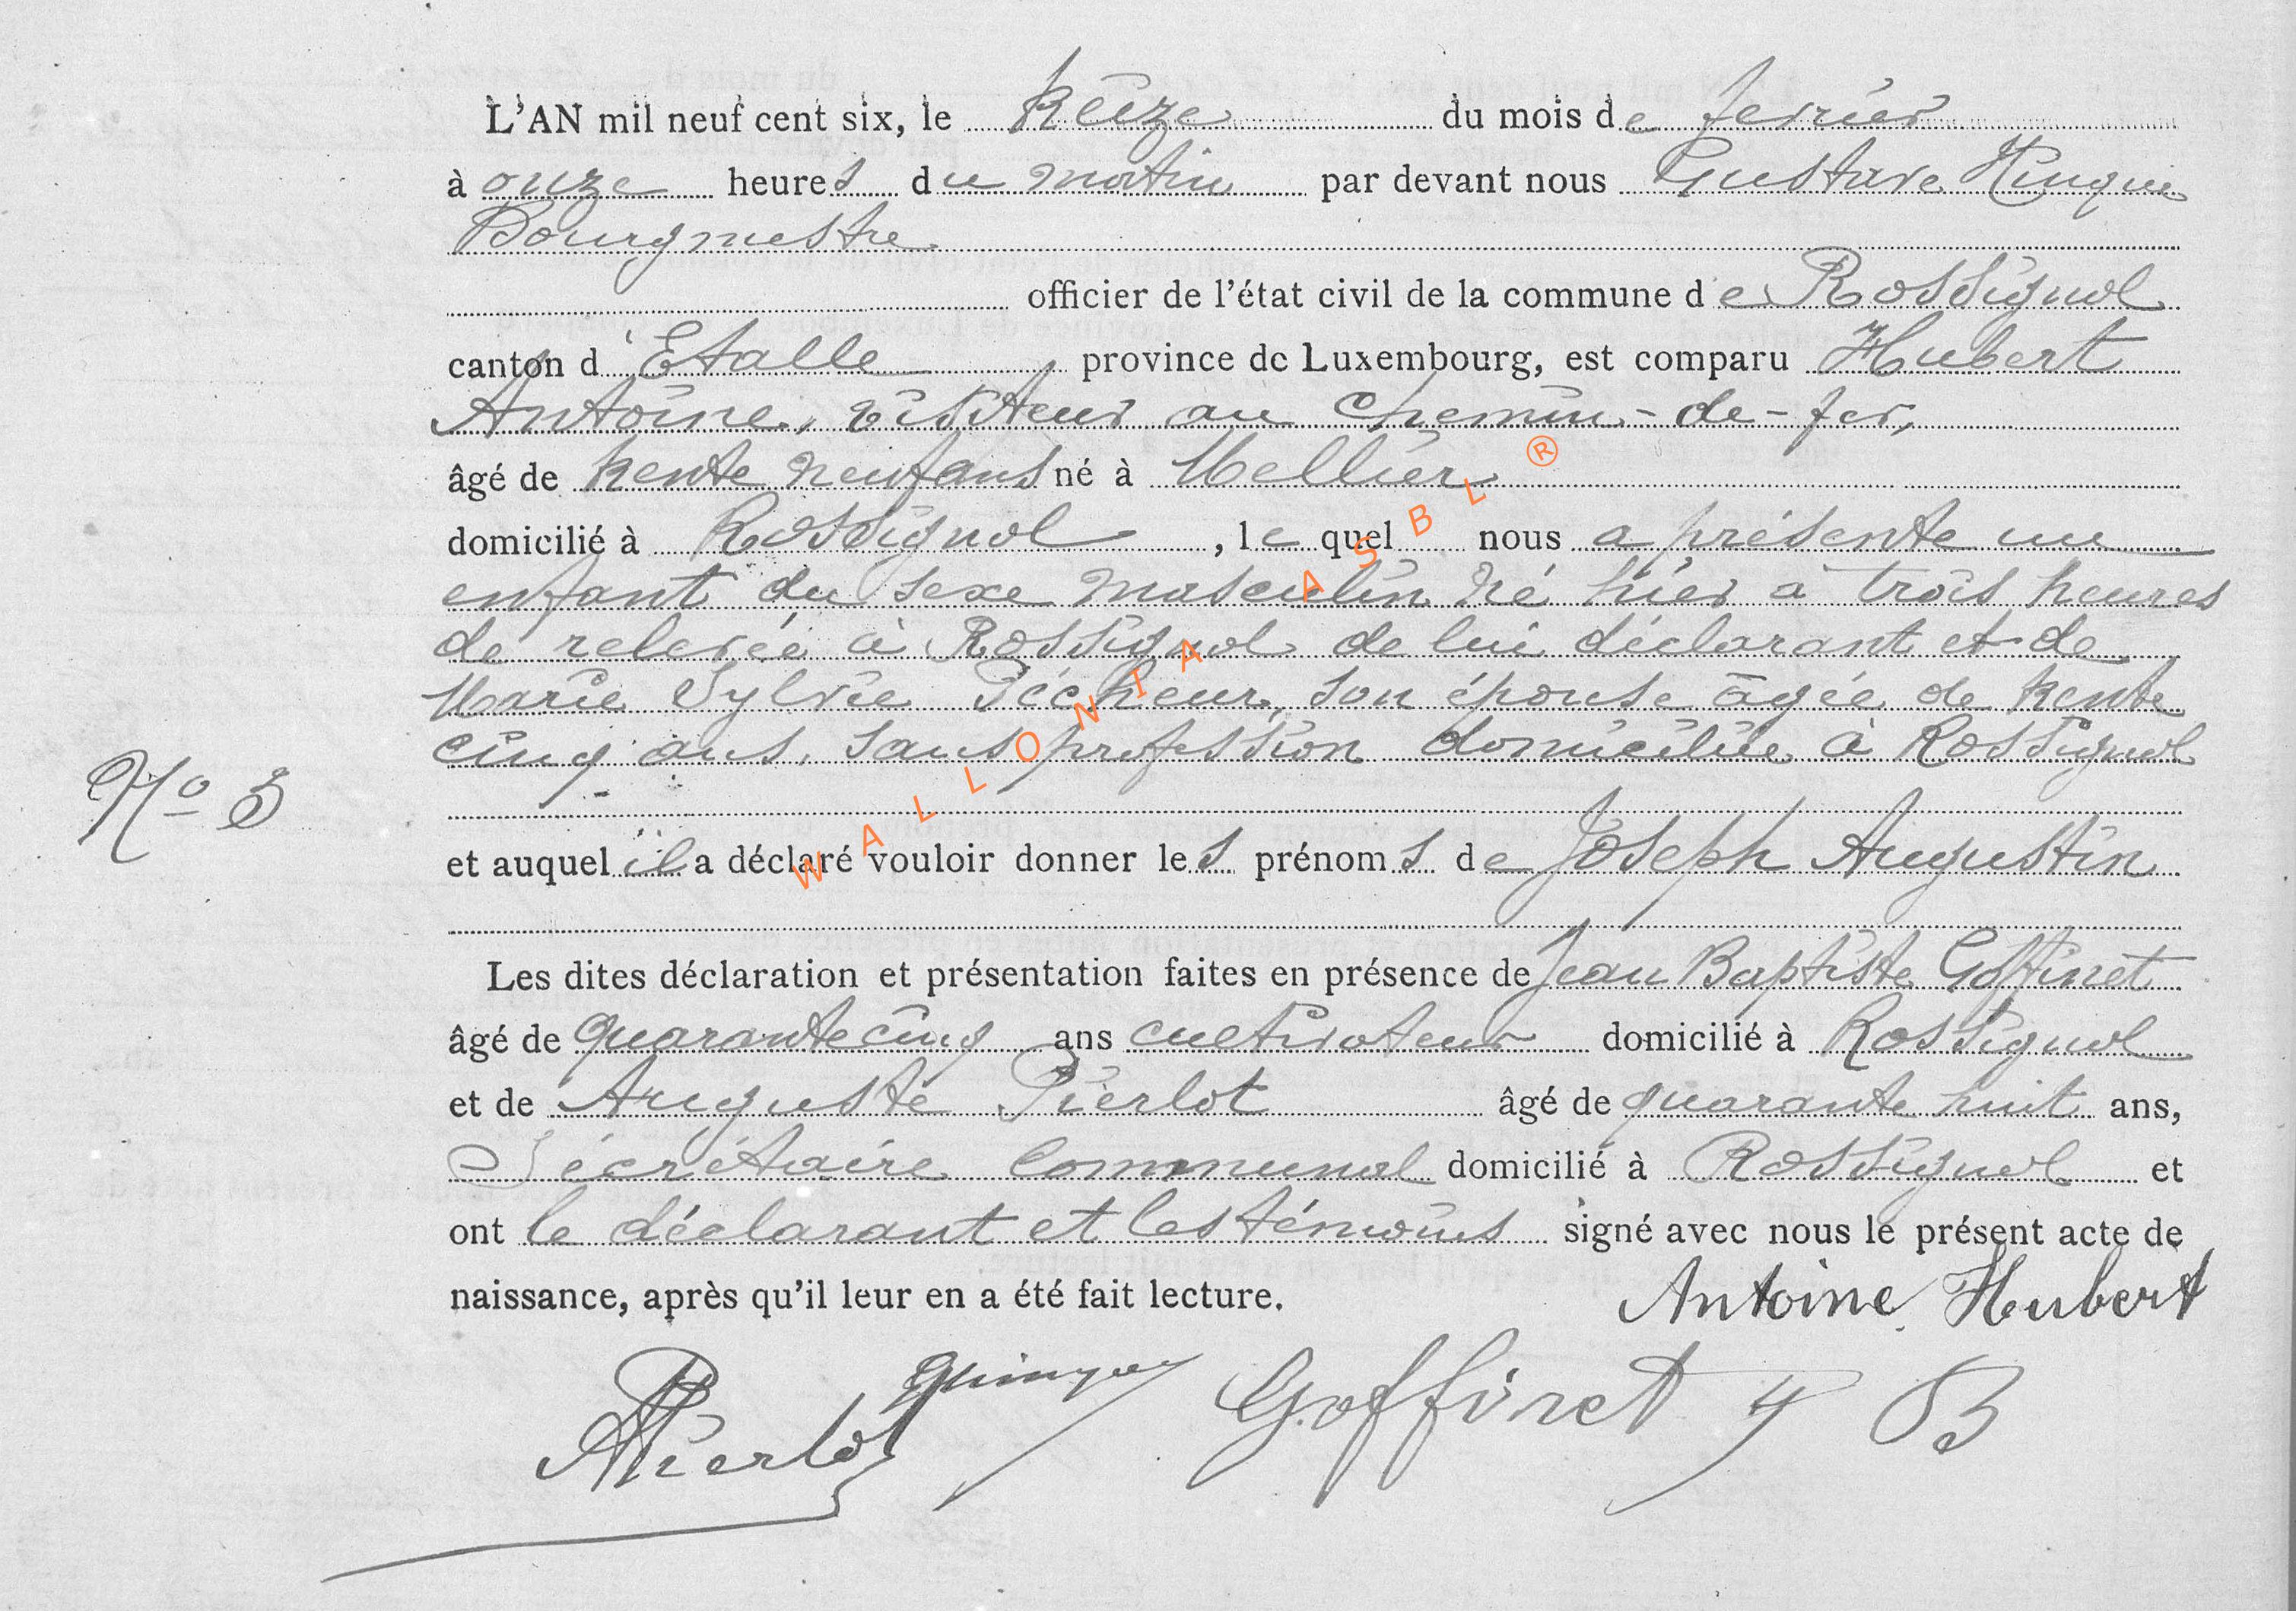 L'AN mil neuf cent six, le treize du mois de fevrier
à onze heures du matin par devant nous Gustave Hinque
Bourgmestre
officier de l'état civil de la commune de Rossignol
canton d'Etalle province de Luxembourg, est comparu Hubert
Antoine, visiteur au chemin-de-fer,
âgé de trente neuf ans né à Mellier
domicilié à Rossignol, lequel nous a présenté un
enfant du sexe masculin né hier à trois heures
de relevée à Rossignol de lui déclarant et de
Marie Sylvie Pécheur, son épouse âgée de trente
cinq ans, sans profession domiciliée à Rossignol
No 3
et auquel il a déclaré vouloir donner les prénoms de Joseph Augustin
Les dites déclaration et présentation faites en présence de Jean Baptiste Goffinet
âgé de quarante cinq ans cultivateur domicilié à Rossignol
et de Auguste Pierlot âgé de quarante huit ans,
Sécrétaire communal domicilié à Rossignol et
ont le déclarant et les témoins signé avec nous le présent acte de
naissance, après qu'il leur en a été fait lecture.
Antoine Hubert
APierlot Goffinet J B
WALLONIA ASBL ®